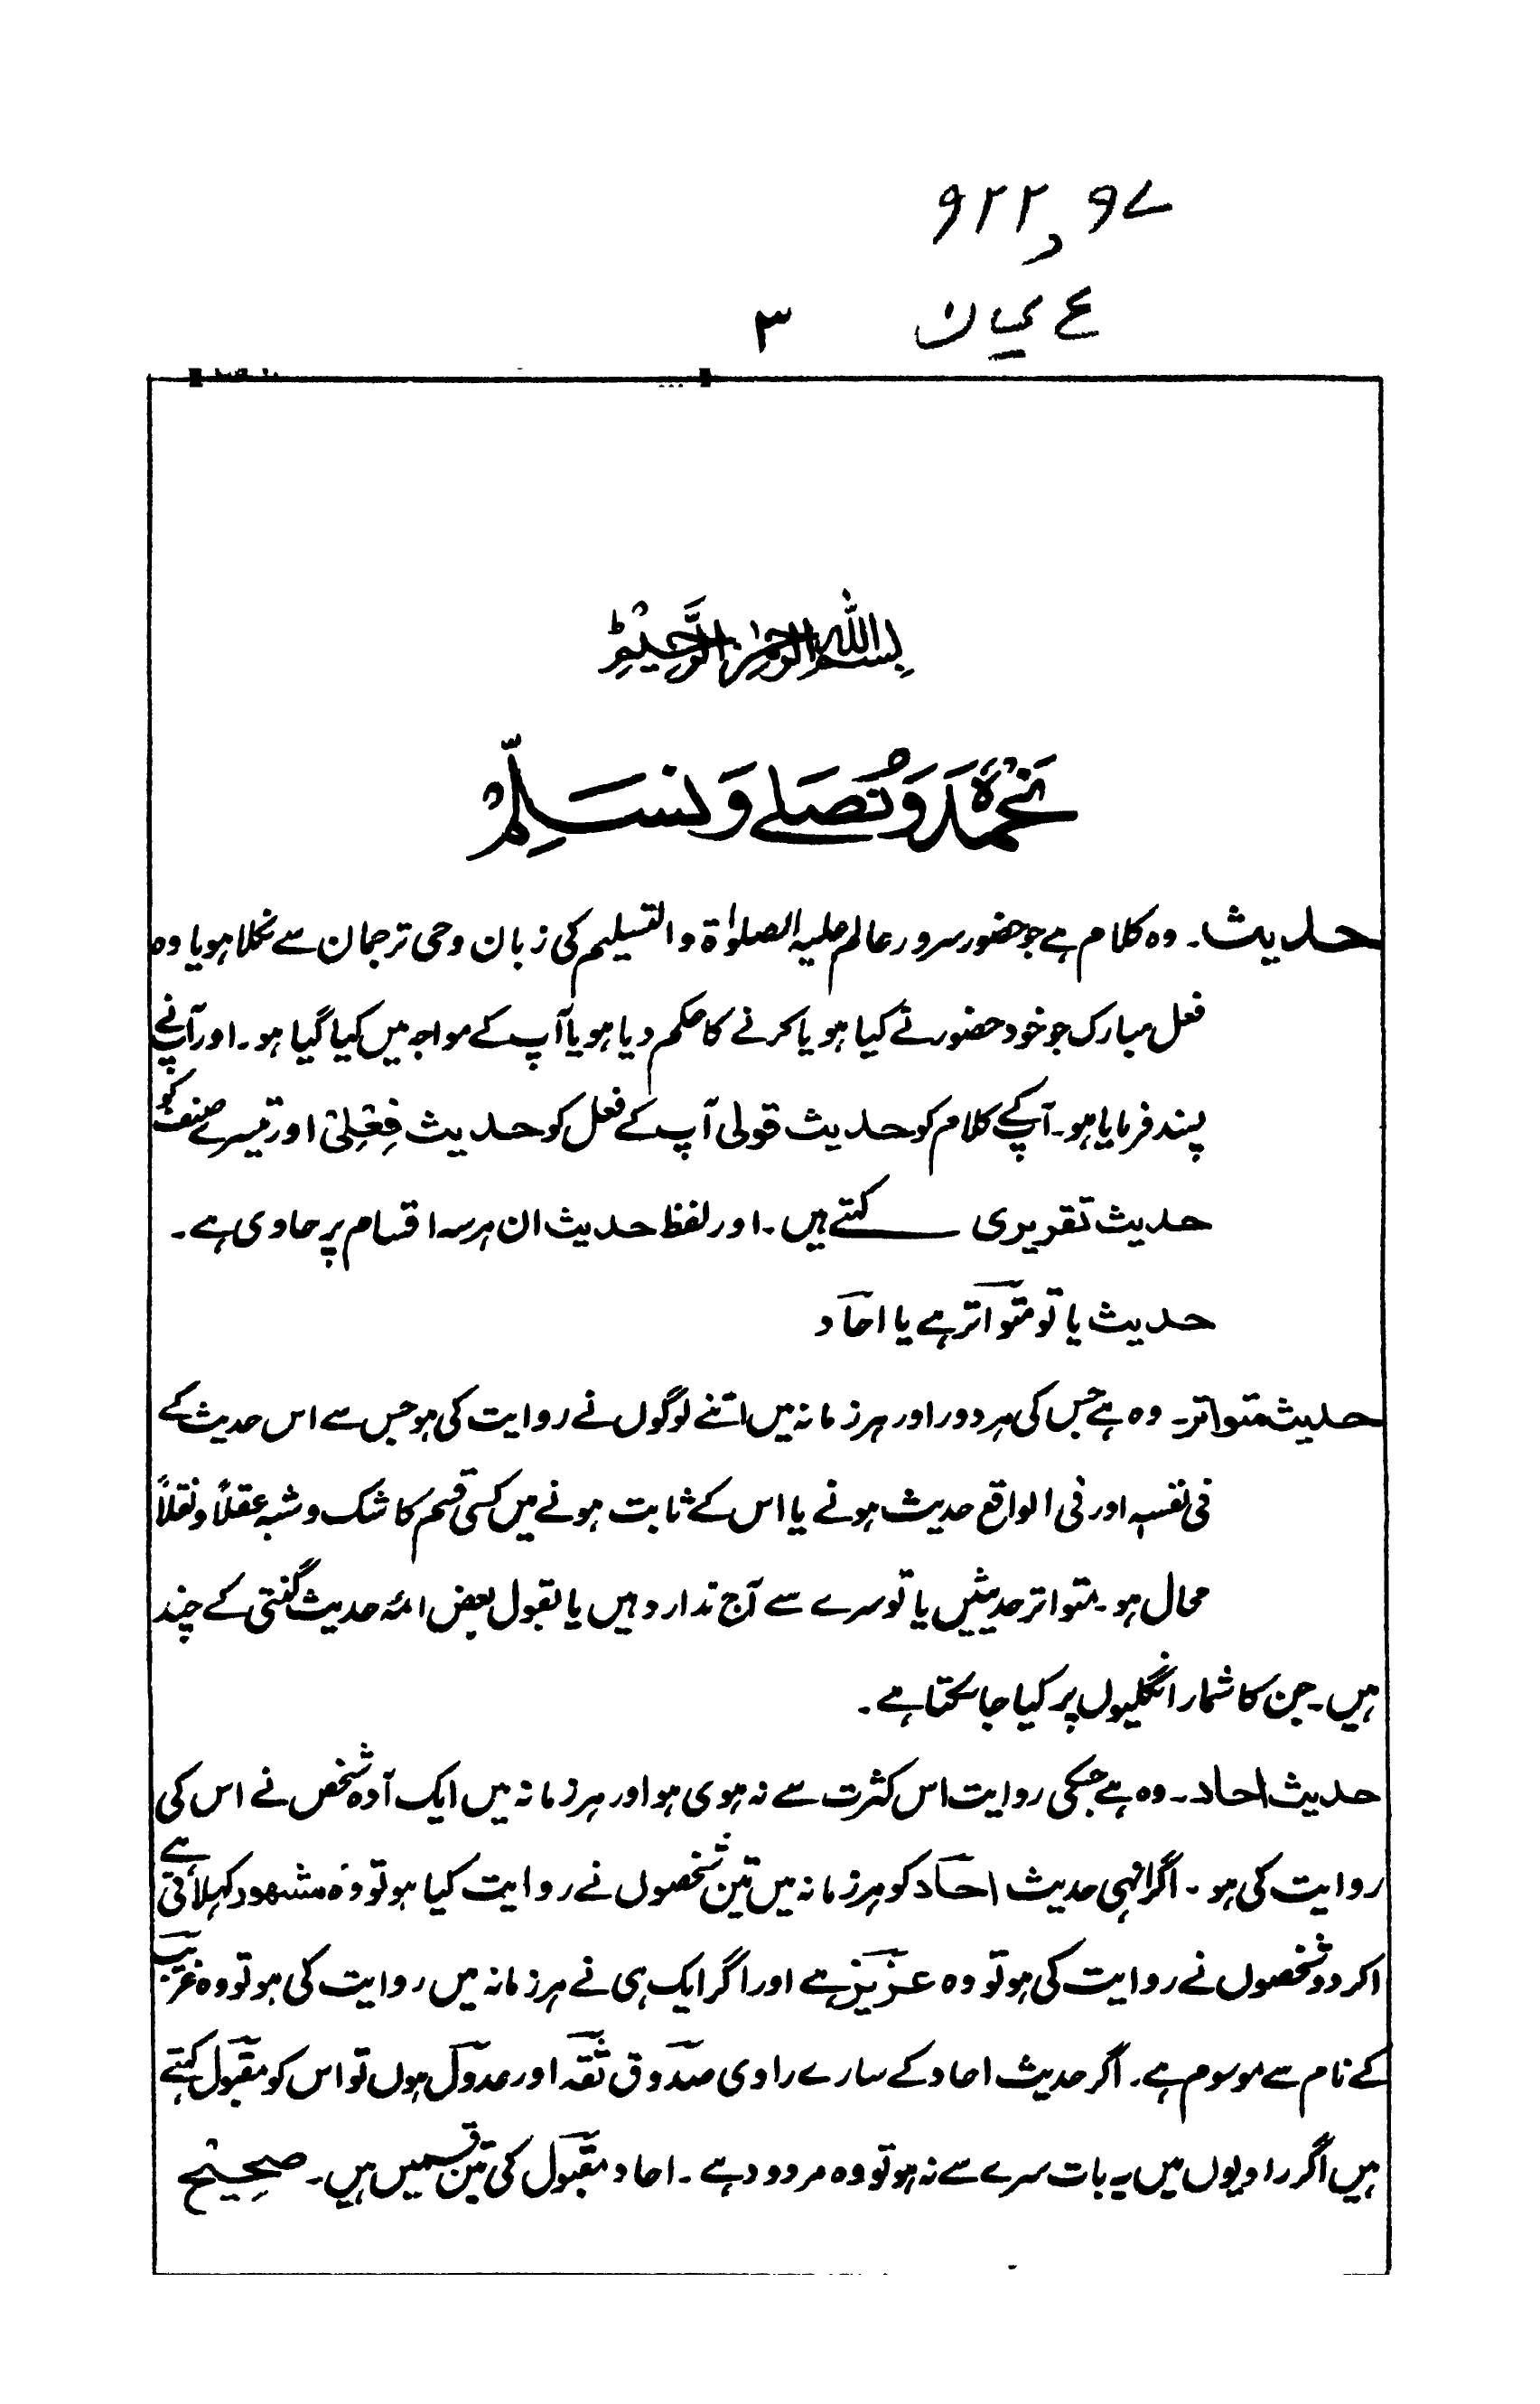 ۹۲۲٫۹۷
ع ی ان
۳
بسم اللہ الرحمن الرحیم ط
نَحمدہٗ وَنُصَلے وَنسَلِّمْ
حدیث۔ وہ کلام ہے جو حضور سرور عالم علیہ الصلوٰۃ والتسلیم کی زبان وحی ترجمان سے نکلا ہو یا وہ
فعل مبارک جو خود حضور نے کیا ہو یا کرنے کا حکم دیا ہو یا آپ کے مواجہ میں کیا گیا ہو۔ اور آپنے
پسند فرمایا ہو۔ آپکے کلام کو حدیث قولی آپ کے فعل کو حدیث فِعْلِیْ اور تیسرے صنف کو
حدیث تقریری کہتے ہیں۔ اور لفظ حدیث ان ہر سہ اقسام پر حاوی ہے۔
حدیث یا تو متواتر ہے یا احاد
حدیث متواتر۔ وہ ہے جس کی ہر دور اور ہر زمانہ میں اتنے لوگوں نے روایت کی ہو جس سے اس حدیث کے
فی نفسہ اور فی الواقع حدیث ہونے یا اس کے ثابت ہونے میں کسی قسم کا شک و شبہ عقلاً و نقلاً
محال ہو۔ متواتر حدیثیں یا تو سرے سے آج ندارد ہیں یا بقول بعض ائمہ حدیث گنتی کے چند
ہیں۔ جن کا شمار انگلیوں پر کیا جا سکتا ہے۔
حدیث احاد۔ وہ ہے جسکی روایت اس کثرت سے نہ ہوی ہو اور ہر زمانہ میں ایک آدہ شخص نے اس کی
روایت کی ہو۔ اگر انہی حدیث احاد کو ہر زمانہ میں تین شخصوں نے روایت کیا ہو تو وہ مشھور کہلاتی ہے
اکر دو شخصوں نے روایت کی ہو تو وہ عزیز ہے اور اگر ایک ہی نے ہر زمانہ میں روایت کی ہو تو وہ غریب
کے نام سے موسوم ہے۔ اگر حدیث احاد کے سارے راوی صدوق ثقہ اور عدول ہوں تو اس کو مقبول کہتے
ہیں اگر راویوں میں یہ بات سرے سے نہ ہو تو وہ مردود ہے۔ احاد مقبول کی تین قسمیں ہیں۔ صحِیْح